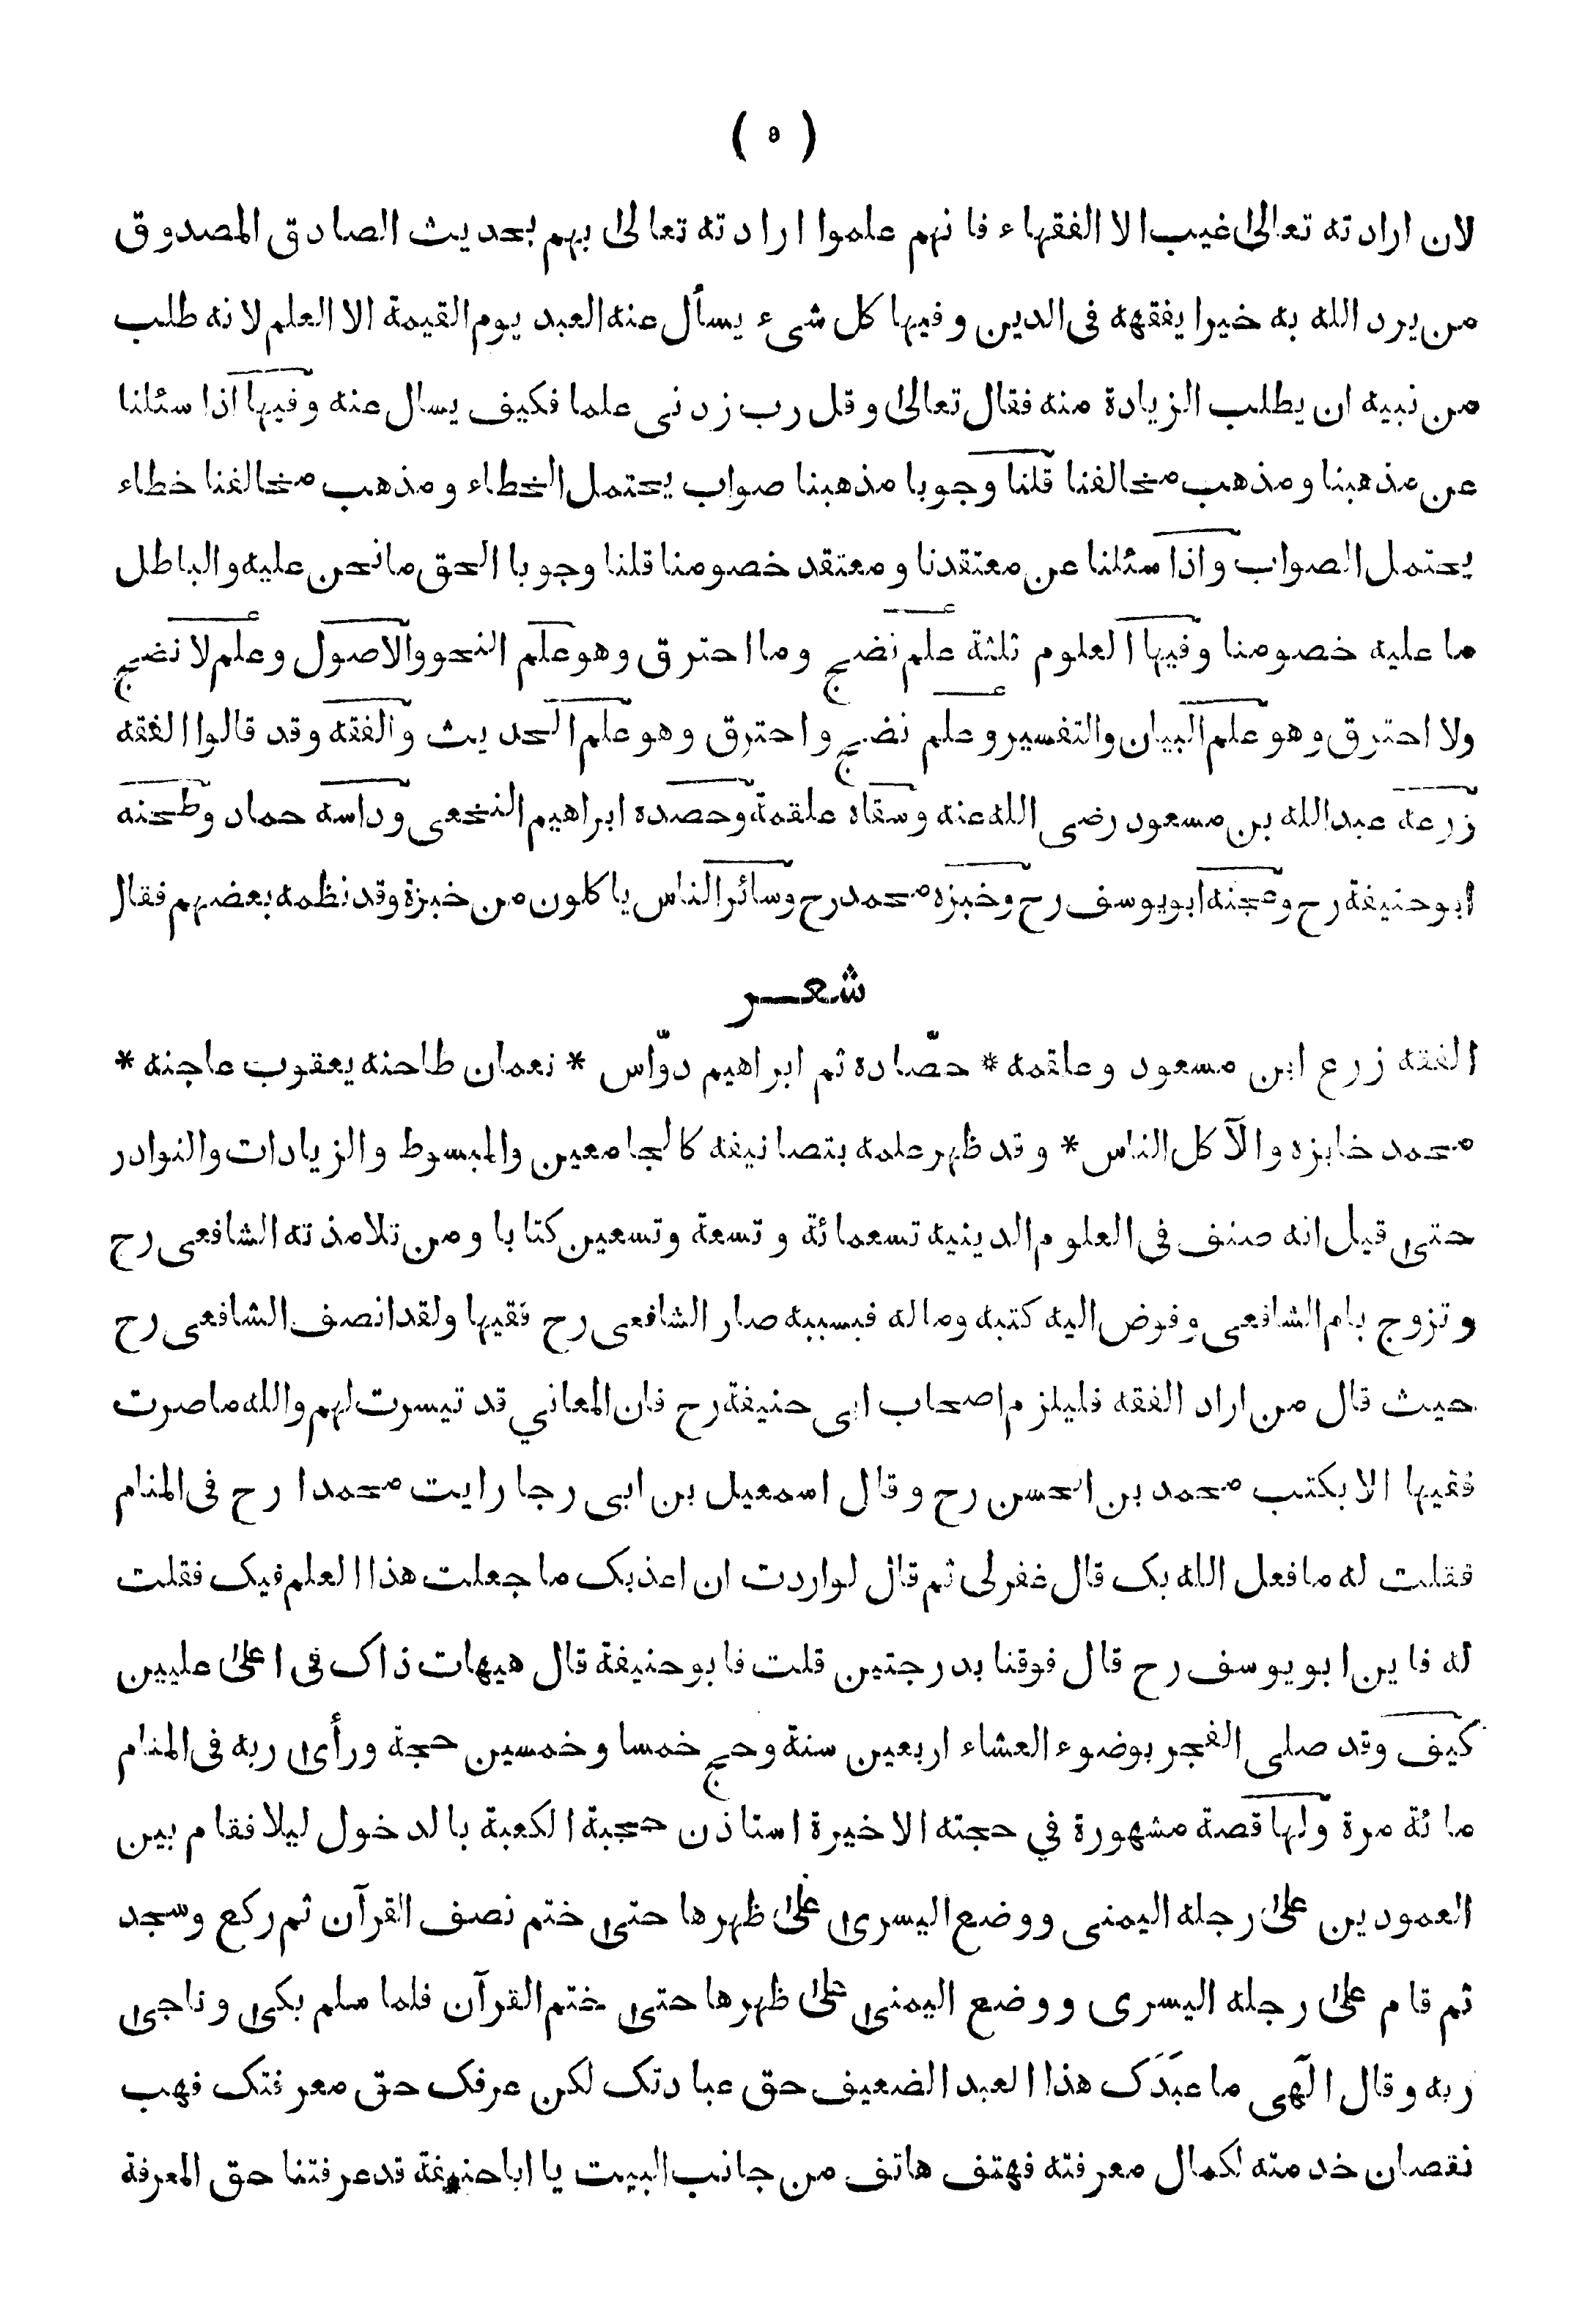 ( ٥ )
لان ارادته تعالى غيب الا الفقهاء فانهم علموا ارادته تعالى بهم بحديث الصادق المصدوق
من يرد الله به خيرا يفقهه فى الدين وفيها كل شىء يسأل عنه العبد يوم القيمة الا العلم لانه طلب
من نبيه ان يطلب الزيادة منه فقال تعالى وقل رب زدنى علما فكيف يسال عنه وفيها اذا سئلنا
عن مذهبنا ومذهب مخالفنا قلنا وجوبا مذهبنا صواب يحتمل الخطاء ومذهب مخالفنا خطاء
يحتمل الصواب واذا سئلنا عن معتقدنا ومعتقد خصومنا قلنا وجوبا الحق مانحن عليه والباطل
ما عليه خصومنا وفيها العلوم ثلثة علم نضج وما احترق وهو علم النحو والاصول وعلم لا نضج
ولا احترق وهو علم البيان والتفسير وعلم نضج واحترق وهو علم الحديث والفقه وقد قالوا الفقه
زرعه عبدالله بن مسعود رضى الله عنه وسقاه علقمة وحصده ابراهيم النخعى وداسه حماد وطحنه
ابوحنيفة رح وعجنه ابويوسف رح وخبزه محمد رح وسائر الناس ياكلون من خبزة وقد نظمه بعضهم فقال
شعر
الفقه زرع ابن مسعود وعلقمه * حصّاده ثم ابراهيم دوّاس * نعمان طاحنه يعقوب عاجنه *
محمد خابزه والآكل الناس * وقد ظهر علمه بتصانيفه كالجامعين والمبسوط والزيادات والنوادر
حتى قيل انه صنف فى العلوم الدينيه تسعمائة وتسعة وتسعين كتابا ومن تلامذته الشافعى رح
وتزوج بام الشافعى وفوض اليه كتبه وماله فبسببه صار الشافعى رح فقيها ولقد انصف الشافعى رح
حيث قال من اراد الفقه فليلزم اصحاب ابى حنيفة رح فان المعاني قد تيسرت لهم والله ماصرت
فقيها الا بكتب محمد بن الحسن رح وقال اسمعيل بن ابى رجا رايت محمدا رح فى المنام
فقلت له مافعل الله بک قال غفرلى ثم قال لواردت ان اعذبک ما جعلت هذا العلم فيک فقلت
له فاين ابويوسف رح قال فوقنا بدرجتين قلت فابوحنيفة قال هيهات ذاک فى اعلى عليين
كيف وقد صلى الفجر بوضوء العشاء اربعين سنة وحج خمسا وخمسين حجة ورأى ربه فى المنام
مائة مرة ولها قصة مشهورة في حجته الاخيرة استاذن حجبة الكعبة بالدخول ليلا فقام بين
العمودين على رجله اليمنى ووضع اليسرى على ظهرها حتى ختم نصف القرآن ثم ركع وسجد
ثم قام على رجله اليسرى ووضع اليمنى على ظهرها حتى ختم القرآن فلما سلم بكى وناجى
ربه وقال الٓهى ما عَبَدَک هذا العبد الضعيف حق عبادتک لكن عرفک حق معرفتک فهب
نقصان خدمته لكمال معرفته فهتف هاتف من جانب البيت يا اباحنيفة قد عرفتنا حق المعرفة